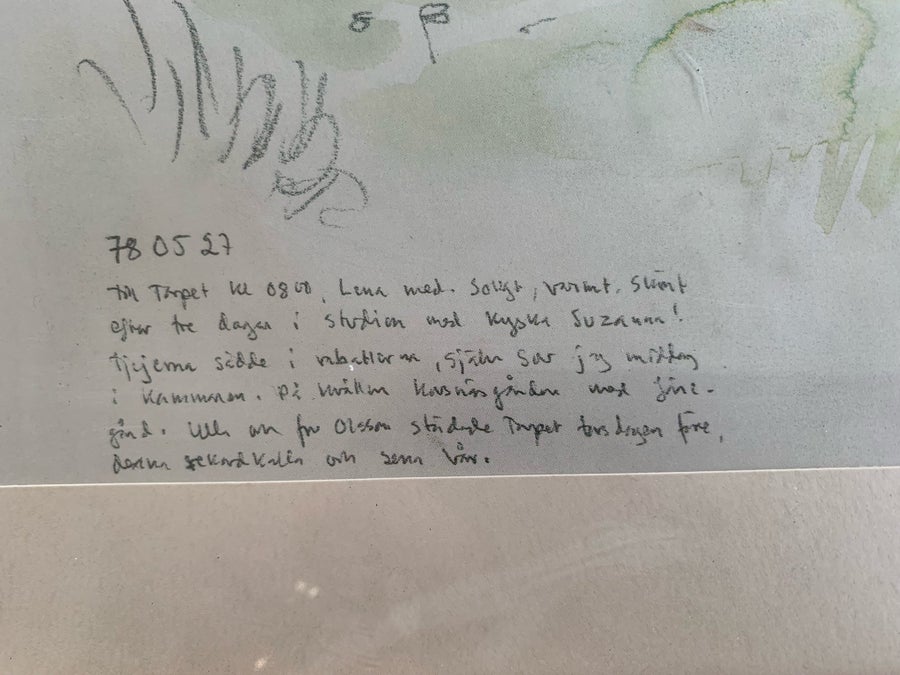 78 05 27
till Torpet kl 0800, Lena med. Soligt, varmt. Skönt
efter tre dagar i studion med Kyska Suzanna!
Tjejerna sådde i rabatterna, själv sov jag middag
i kammaren. På kvällen Korsnäsgården med
gård. fru Olsson städade Torpet torsdagen före,
denna rekordkalla och sena vår.